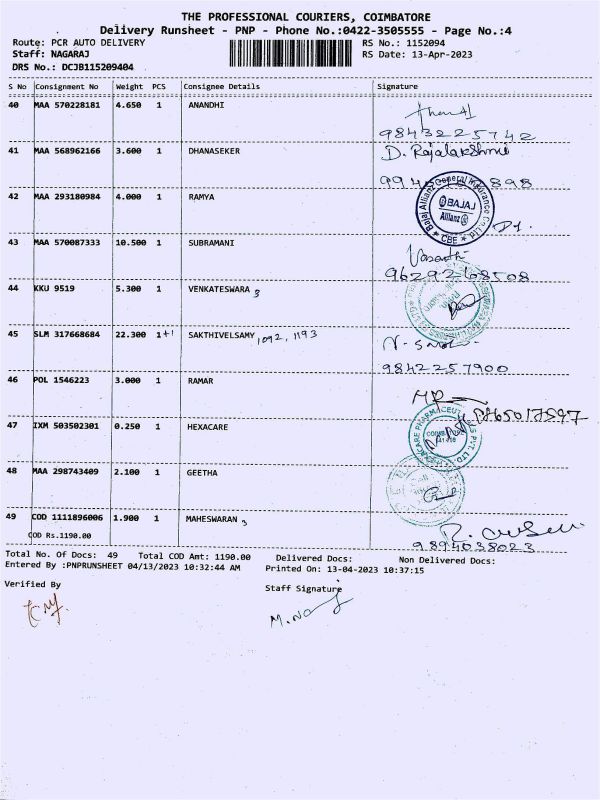 THE PROFESSIONAL COURIERS, COIMBATORE
Delivery Runsheet - PNP - Phone No.:0422-3505555 - Page No.:4
Route: PCR AUTO DELIVERY RS No.: 1152094
Staff: NAGARAJ RS Date: 13-Apr-2023
DRS No.: DCJB115209404
S No Consignment No Weight PCS Consignee Details Signature
40 MAA 570228181 4.650 1 ANANDHI
9843225742
41 MAA 568962166 3.600 1 DHANASEKER D. Rajalakshmi
898
42 MAA 293180984 4.000 1 RAMYA
Bajaj Allianz General Insurance Co
BAJAJ
Allianz
CBE
43 MAA 570087333 10.500 1 SUBRAMANI
9629268508
44 KKU 9519 5.300 1 VENKATESWARA 3
45 SLM 317668684 22.300 1+1 SAKTHIVELSAMY 1092, 1193
9842257900
46 POL 1546223 3.000 1 RAMAR
47 IXM 503502301 0.250 1 HEXACARE
HEXACARE PHARMACEUTICALS PVT. LTD.
48 MAA 298743409 2.100 1 GEETHA
49 COD 1111896006 1.900 1 MAHESWARAN 3
COD Rs.1190.00
9894038023
Total No. Of Docs: 49 Total COD Amt: 1190.00 Delivered Docs: Non Delivered Docs:
Entered By :PNPRUNSHEET 04/13/2023 10:32:44 AM Printed On: 13-04-2023 10:37:15
Verified By Staff Signature